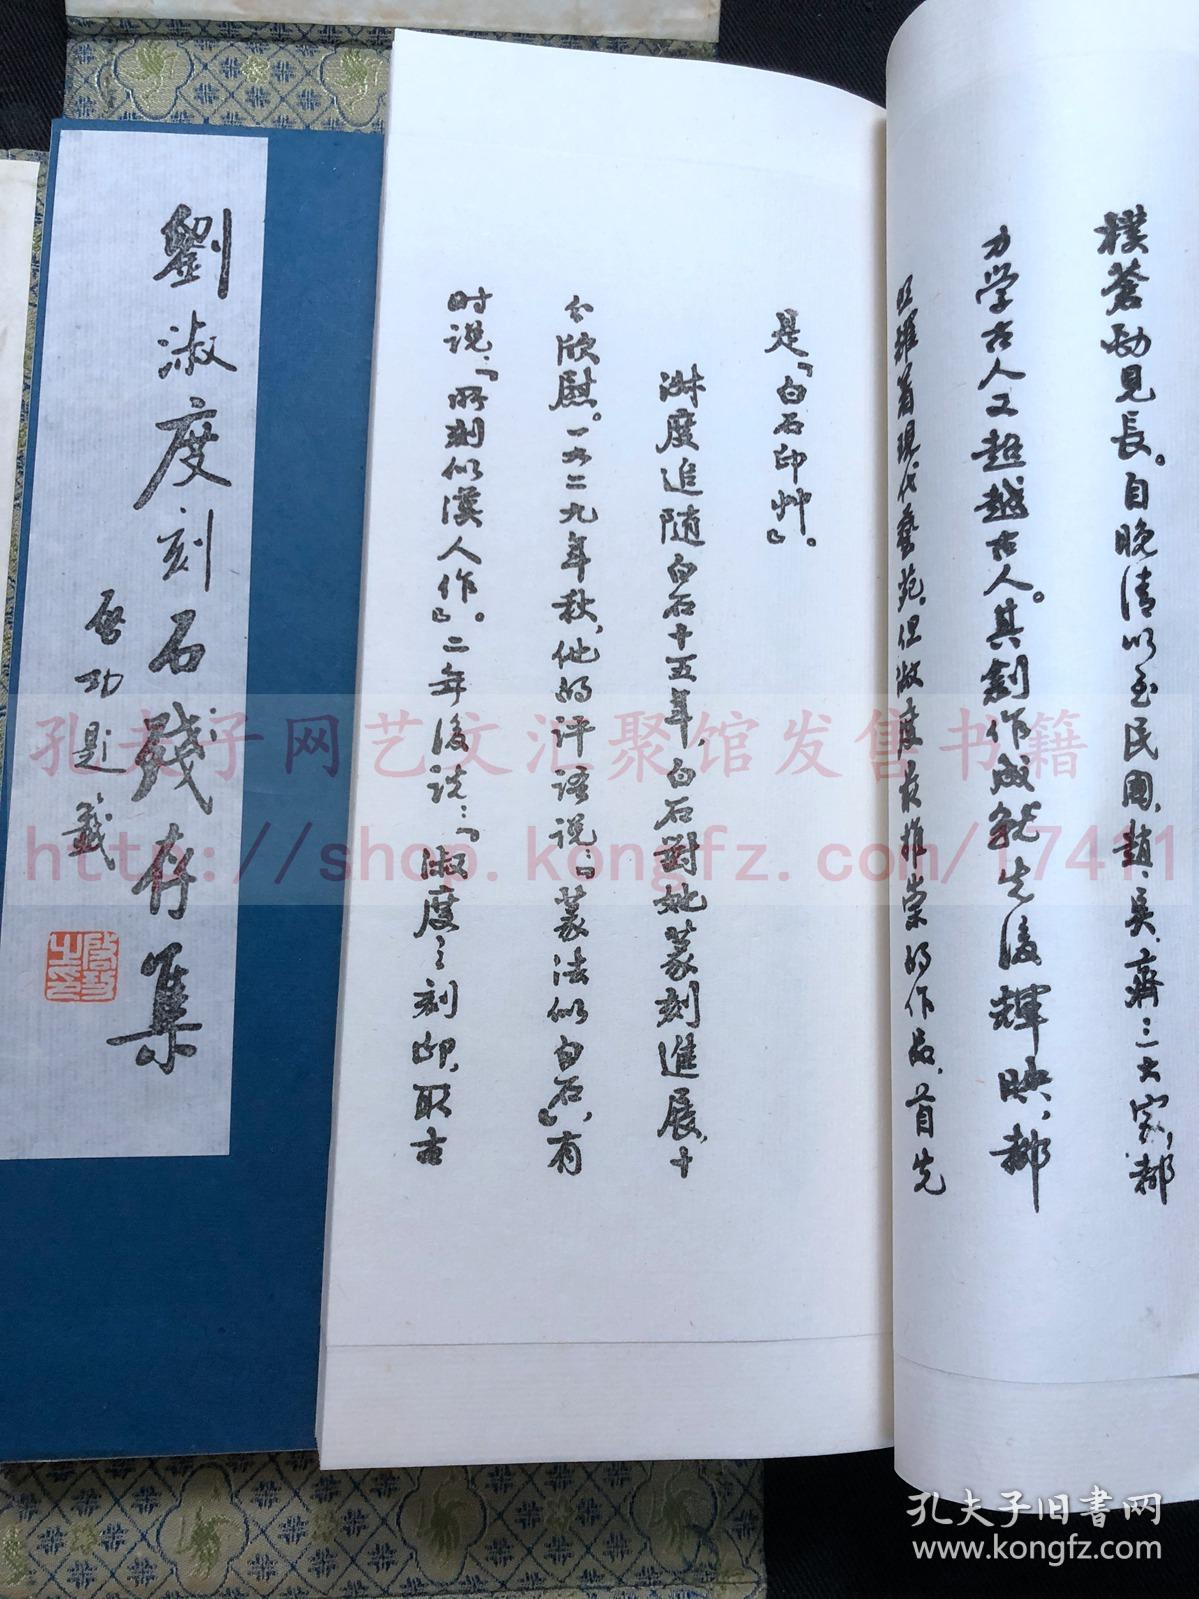 樸蒼勁見長。自晚清以至民國，趙、吳、齊三大家，都
力学古人又超越古人。其創作成就先後輝映，都
照耀着現代藝苑。但淑度最推崇的作品，首先
是「白石印艸」。
淋度追随白石十五年，白石對她篆刻進展，十
分欣慰。一九二九年秋，他的评语说：「篆法似白石」，有
时说：「所刻似漢人作」。二年後说：「淑度之刻印，取古
劉淑度刻石殘存集
启功題籤
孔夫子网艺文汇聚馆发售书籍
http://shop.kongfz.com/17411
孔夫子旧書网
www.kongfz.com